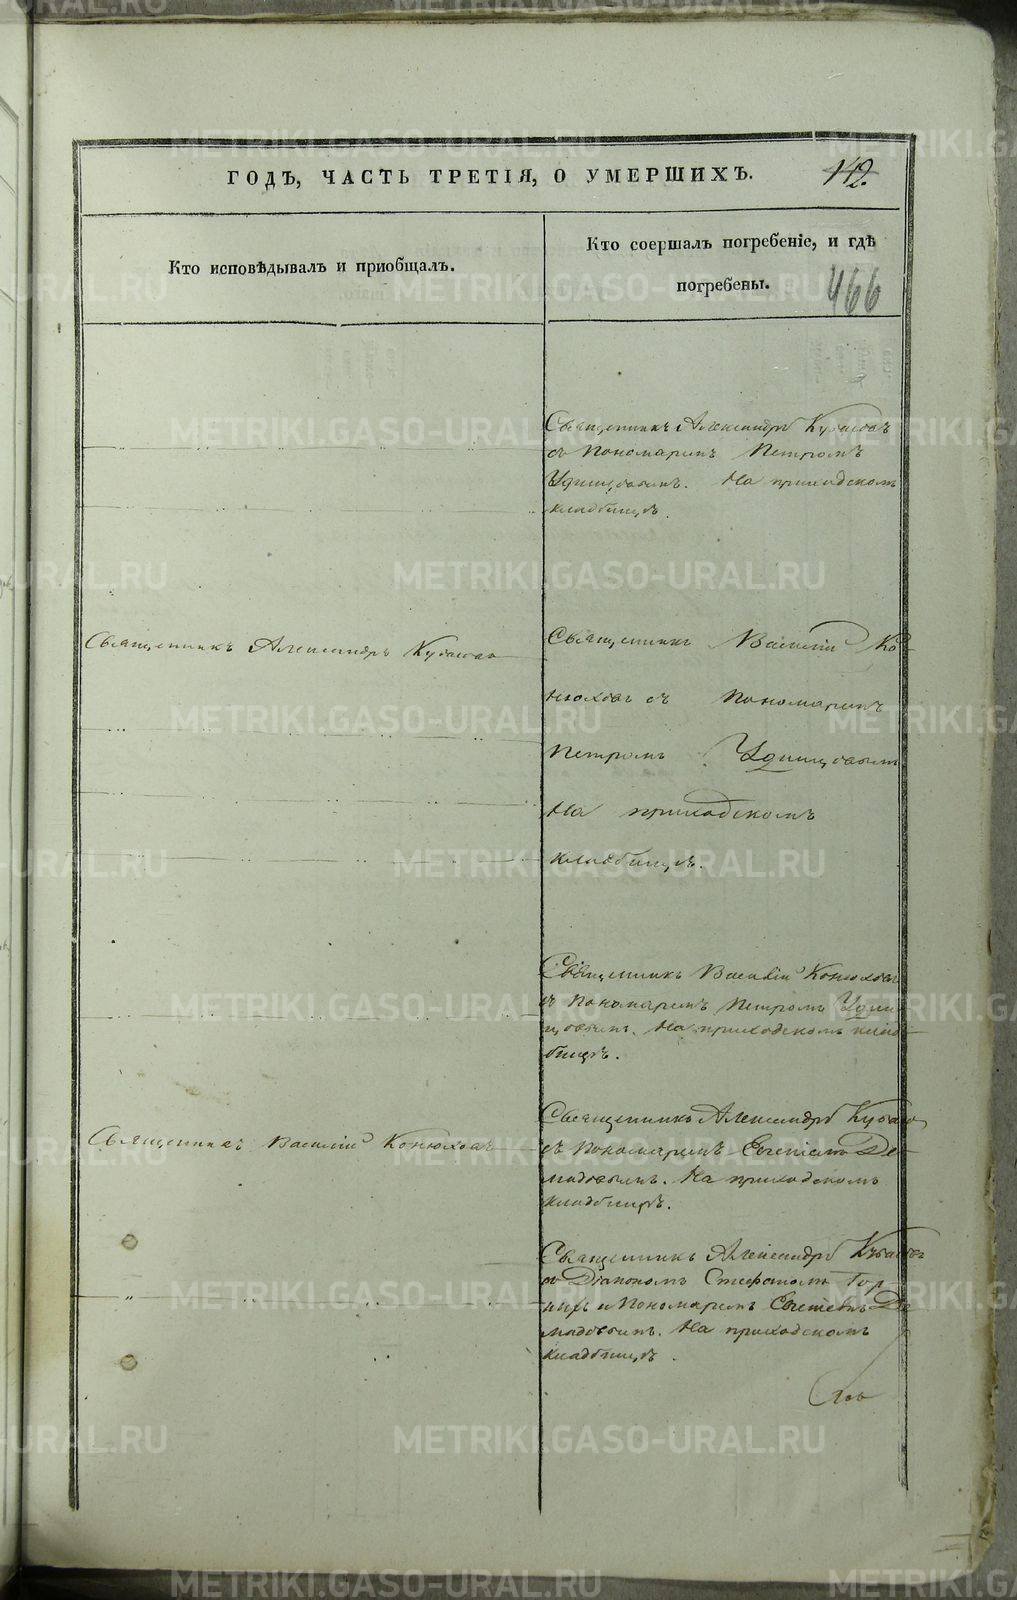 ГОДЪ, ЧАСТЬ ТРЕТІЯ, О УМЕРШИХЪ.
142.
Кто исповѣдывалъ и приобщалъ.
Кто соершалъ погребеніе, и гдѣ
погребены.
466
Священникъ Александръ Кубасовъ
съ Пономаремъ Петромъ
Удинцовымъ. На приходскомъ
кладбищѣ.
Священникъ Александръ Кубасов
Священникъ Василій Ко-
нюховъ съ Пономаремъ
Петромъ Удинцовымъ
На приходскомъ
кладбищѣ.
Священникъ Василій Конюховъ
съ Пономаремъ Петромъ Удин-
цовымъ. На приходскомъ клад-
бищѣ.
Священникъ Василій Конюховъ
Священникъ Александръ Кубасов
съ Пономаремъ Евгеніемъ Де-
мидовымъ. На приходскомъ
кладбищѣ.
Священникъ Александръ Кубасов
съ Діакономъ Стефаномъ Гор-
нихъ и Пономаремъ Евгеніемъ Де-
мидовымъ. На приходскомъ
кладбищѣ.
METRIKI.GASO-URAL.RU